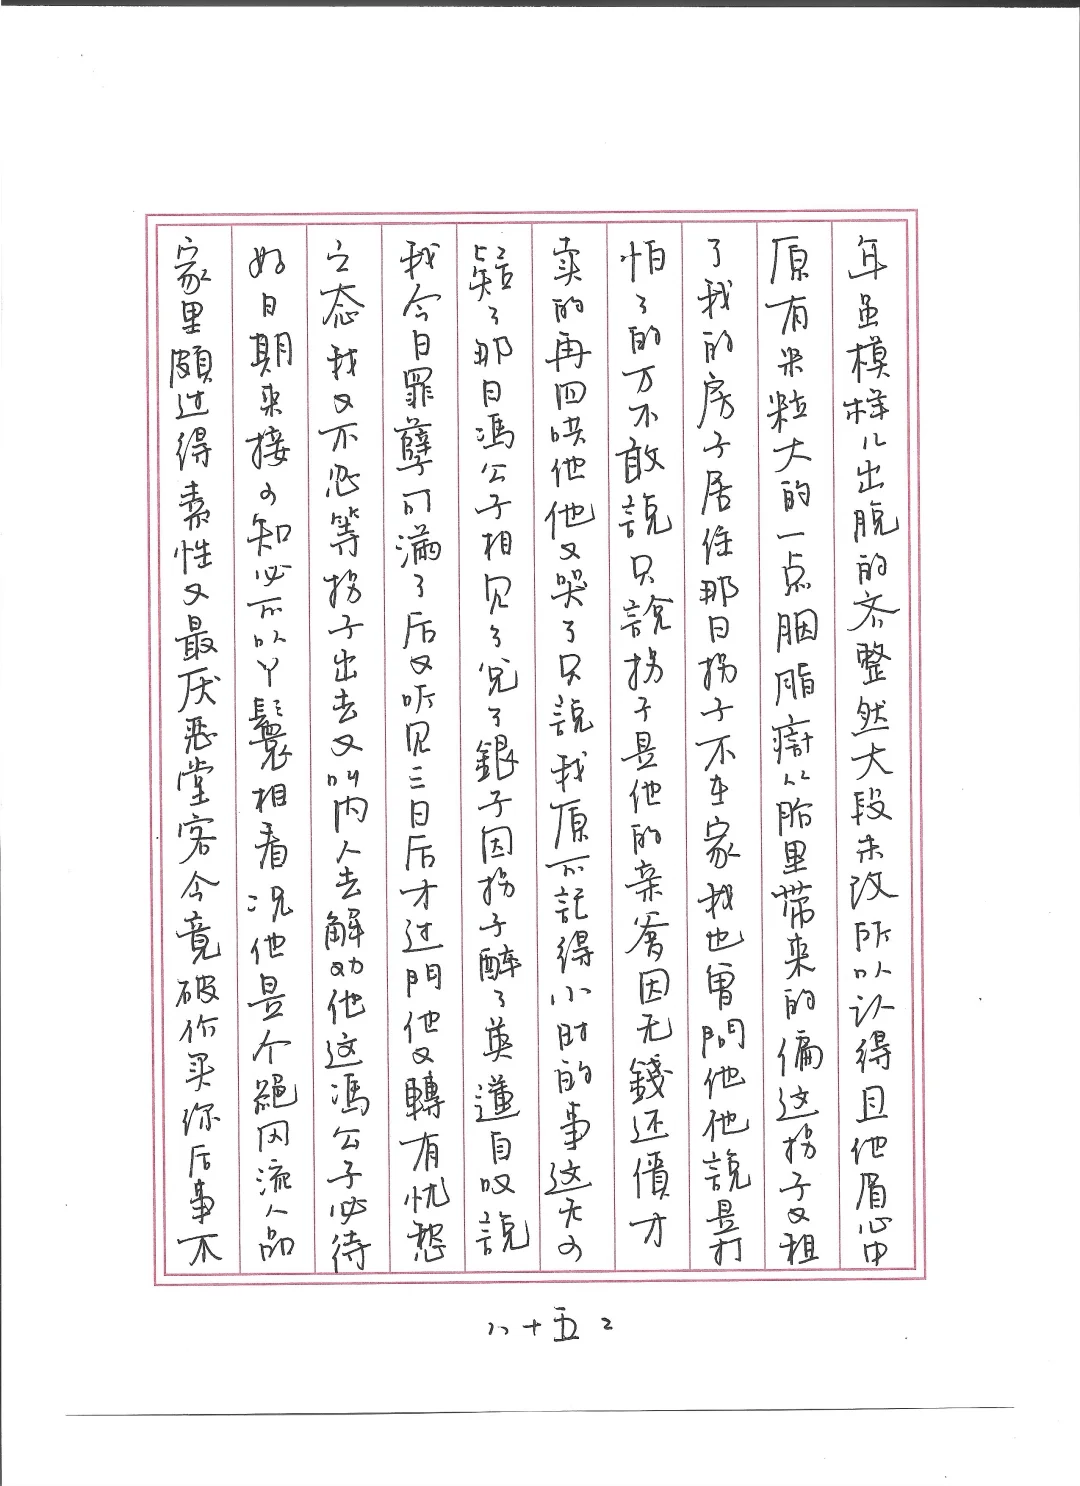 年虽模样儿出脱的齐整然大段未改所以认得且他眉心中
原有米粒大的一点胭脂痣从胎里带来的偏这拐子又租
了我的房子居住那日拐子不在家我也曾問他他說是打
怕了的万不敢說只說拐子是他的亲爹因无錢还債才
卖的再四哄他他又哭了只說我原不記得小时的事这无可
疑了那日馮公子相见了兌了銀子因拐子醉了英蓮自叹說
我今日罪孽可滿了后又听见三日后才过門他又轉有忧愁
之态我又不忍等拐子出去又叫内人去解劝他这馮公子必待
好日期来接可知必不以丫鬟相看况他是个絕风流人品
家里頗过得素性又最厌恶堂客今竟破价买你后事不
六十五